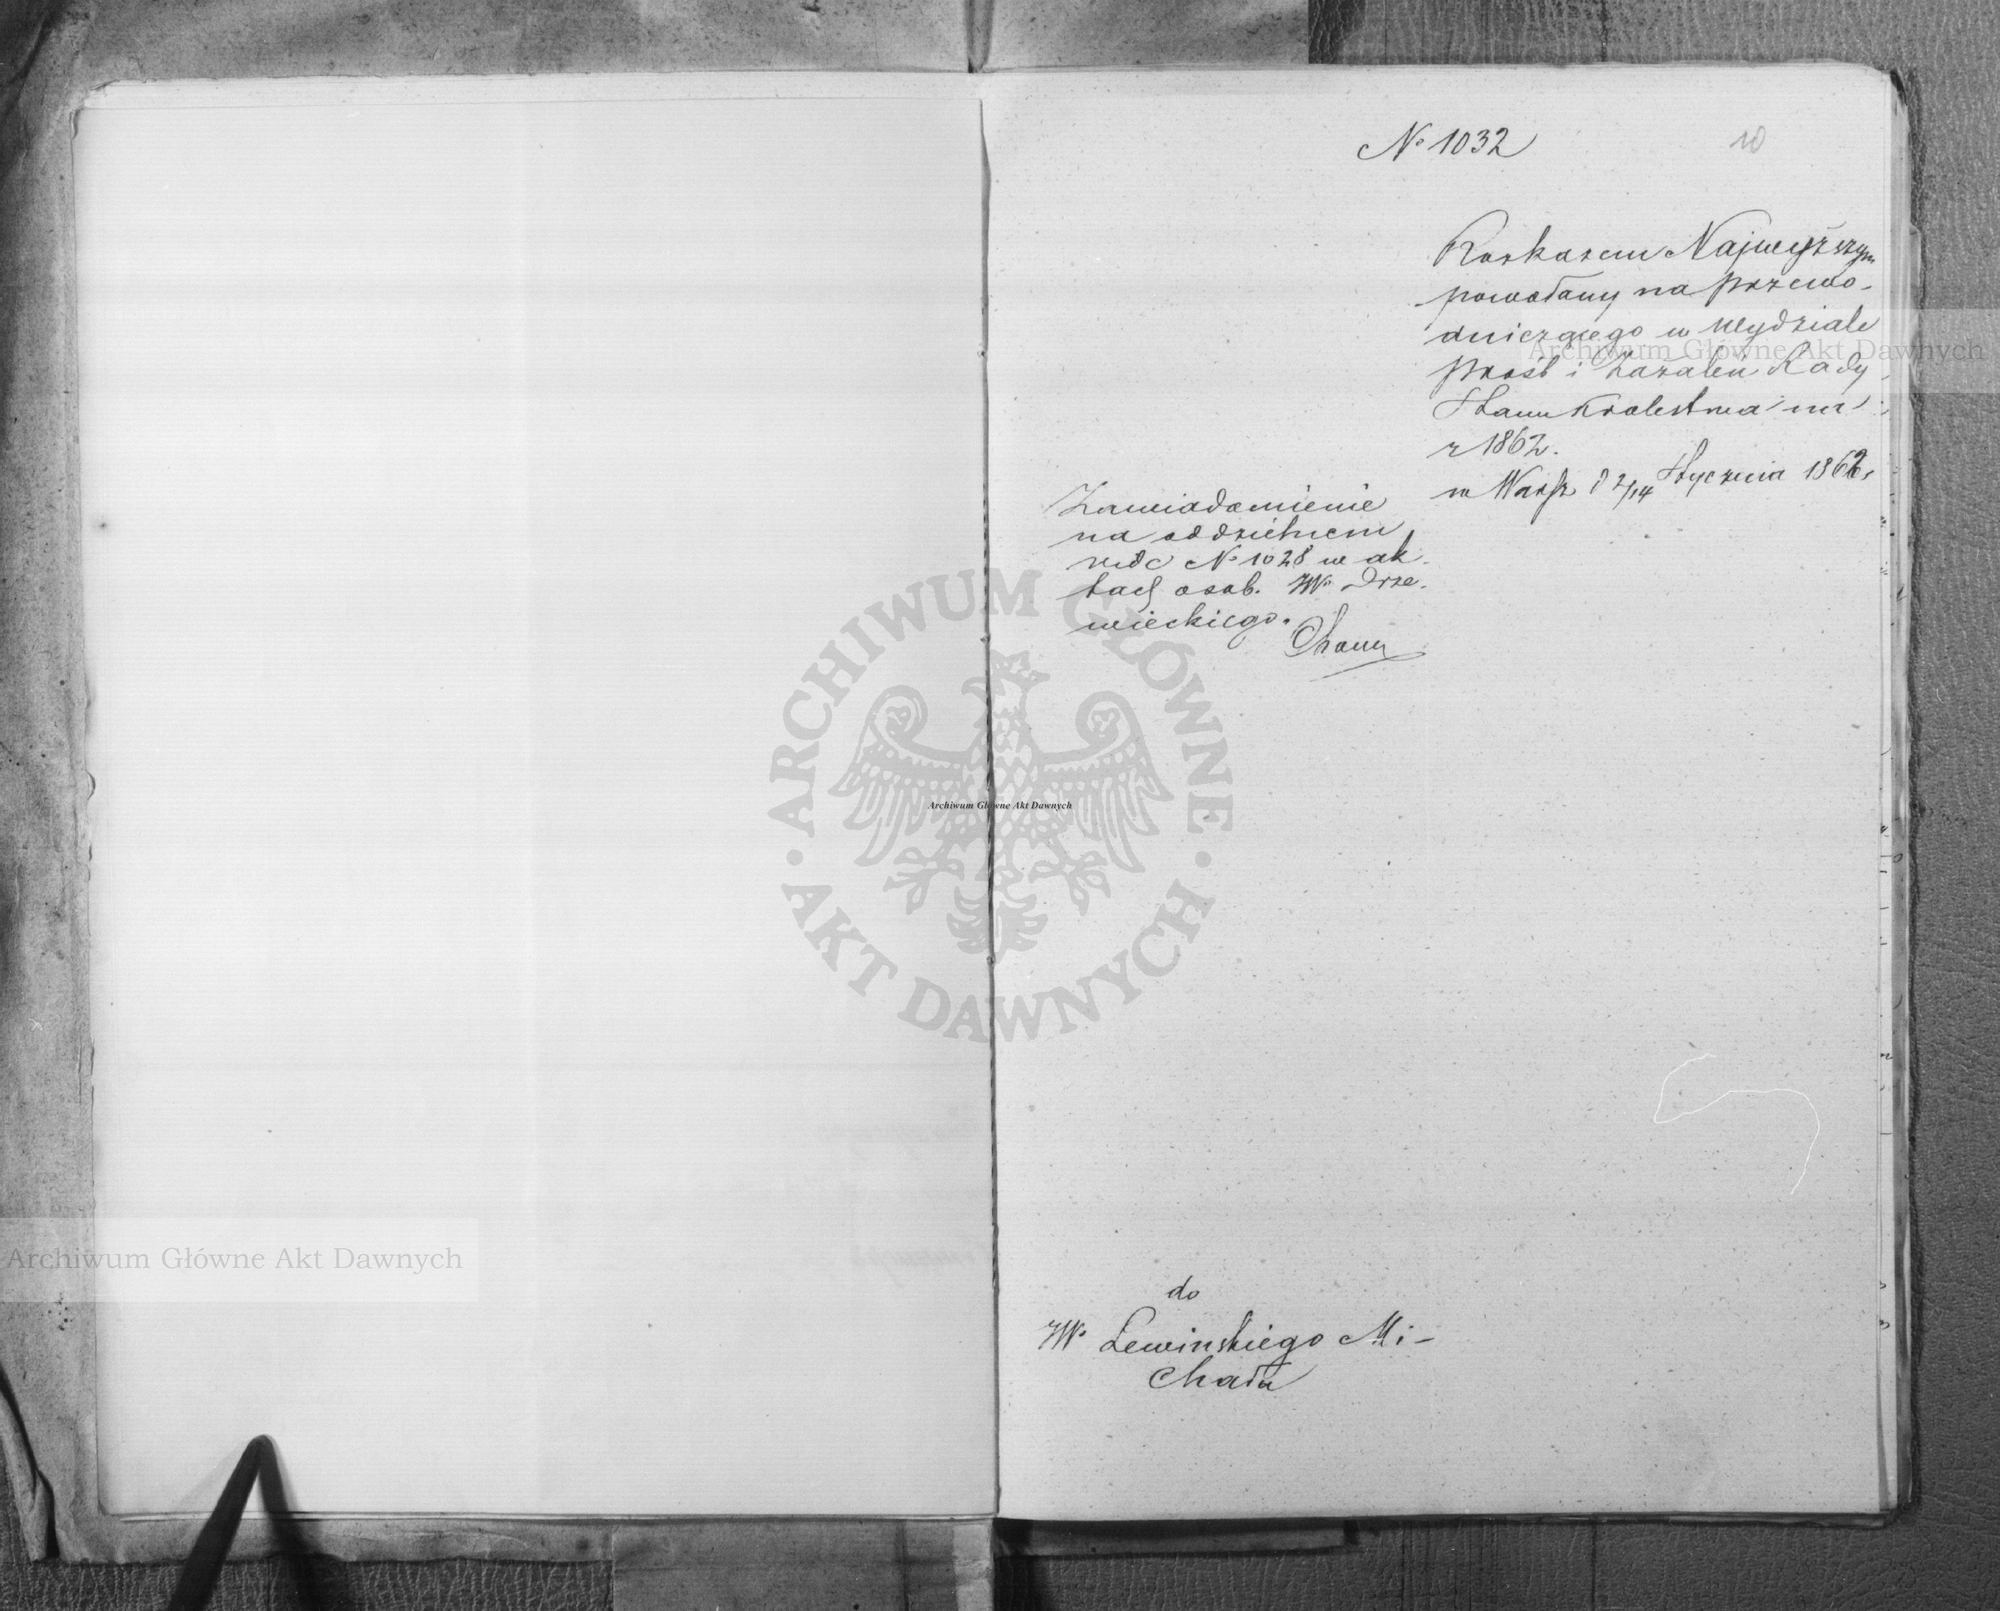 № 1032
10
Roskazem Najwyższym
powołany na przewo-
dniczącego w Wydziale
Próśb i Zażaleń Rady
Stanu Królestwa na
r 1862.
w Warsz d 2/14 Stycznia 1862 r
Zawiadomienie
na oddzielnem
№ 1028 w ak-
tach osob. JW. Drze-
wieckiego.
do
JW. Lewinskiego Mi-
chała
Archiwum Główne Akt Dawnych
ARCHIWUM GŁÓWNE
AKT DAWNYCH
Archiwum Główne Akt Dawnych
Archiwum Główne Akt Dawnych